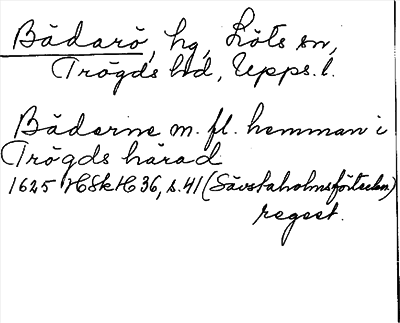 Bådarö, hg, Löts sn,
Trögds hd, Upps. l.
Båderne m. fl. hemman i
Trögds härad
1625 HSkH 36, s. 41 (Sävstaholmsförteckn)
regest.